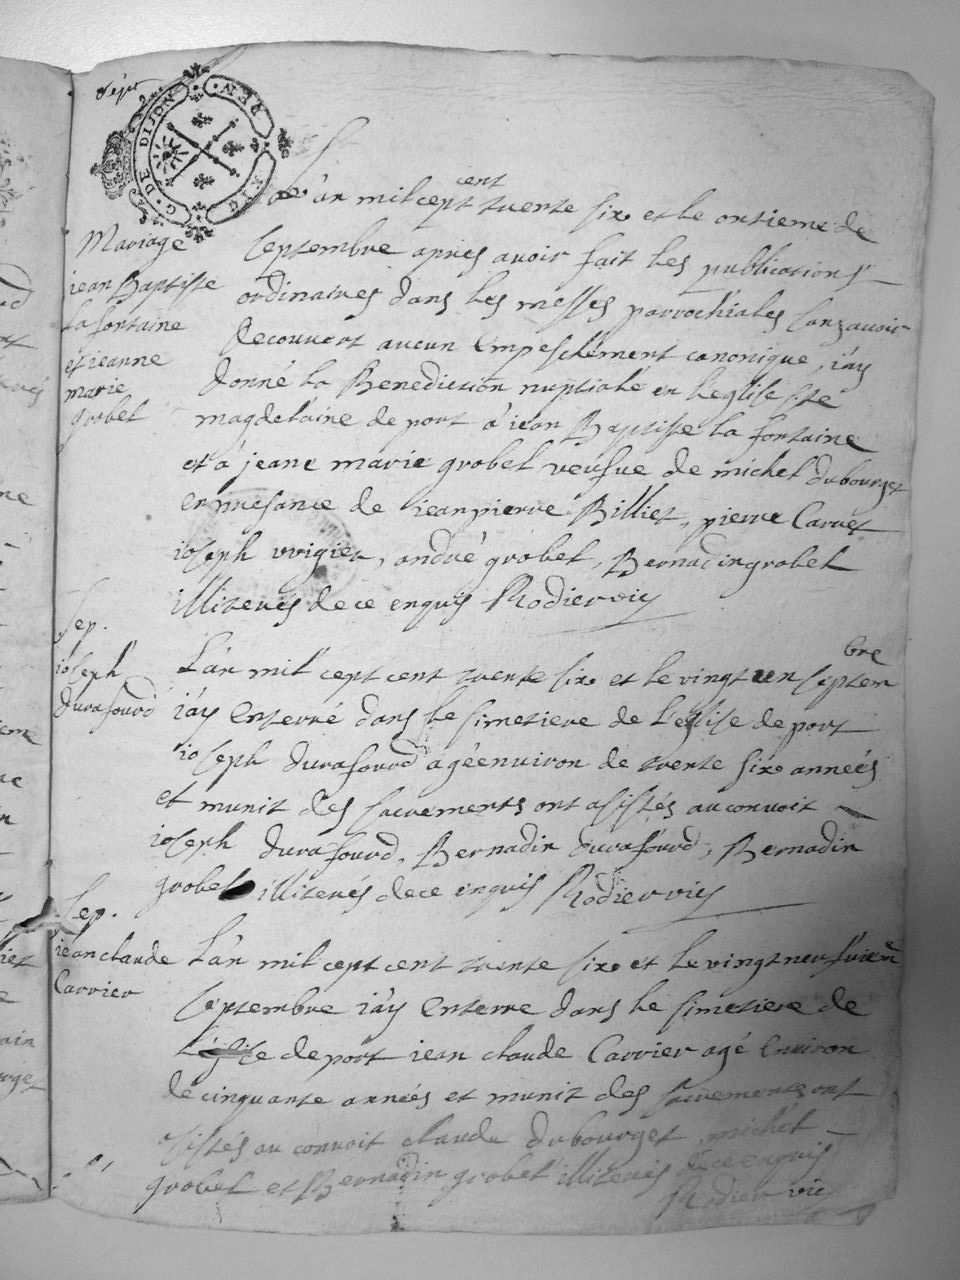 G. DE DIJON
REN
Mariage
jean Baptiste
la fontaine
et jeanne
marie
grobel
L'an mil cept cent trente six et le onsieme de
septembre apres avoir fait les publications
ordinaires dans les messes parrochiales sanz avoir
decouvert aucun empeschement canonique, i'ay
donné la Benediction nuptiale en l'eglise ste
magdelaine de port à jean Baptiste la fontaine
et à jeane marie grobel veufue de michel dubourget
en presance de jean pierre Billiet, pierre Carret
ioseph vvigier, andré grobel, Bernadin grobel
illiterés de ce enquis Rodier vic
Sep.
ioseph
durafourd
L'an mil cept cent trente six et le vingt un septembre
i'ay enterré dans le simetiere de l'eglise de port
ioseph durafourd agé environ de trente six années
et munit des sacrements ont asistés au convoit
ioseph durafourd, Bernadin durafourd, Bernadin
grobel illiterés de ce enquis Rodier vic
Sep.
jean claude
Carrier
L'an mil cept cent trente six et le vingt neufuiem
septembre i'ay enterre dans le simetiere de
l'eglise de port jean claude Carrier agé environ
de cinquante années et munit des sacrements ont
asistés au convoit claude dubourget, michel
grobel et Bernadin grobel illiterés de ce enquis
Rodier vic